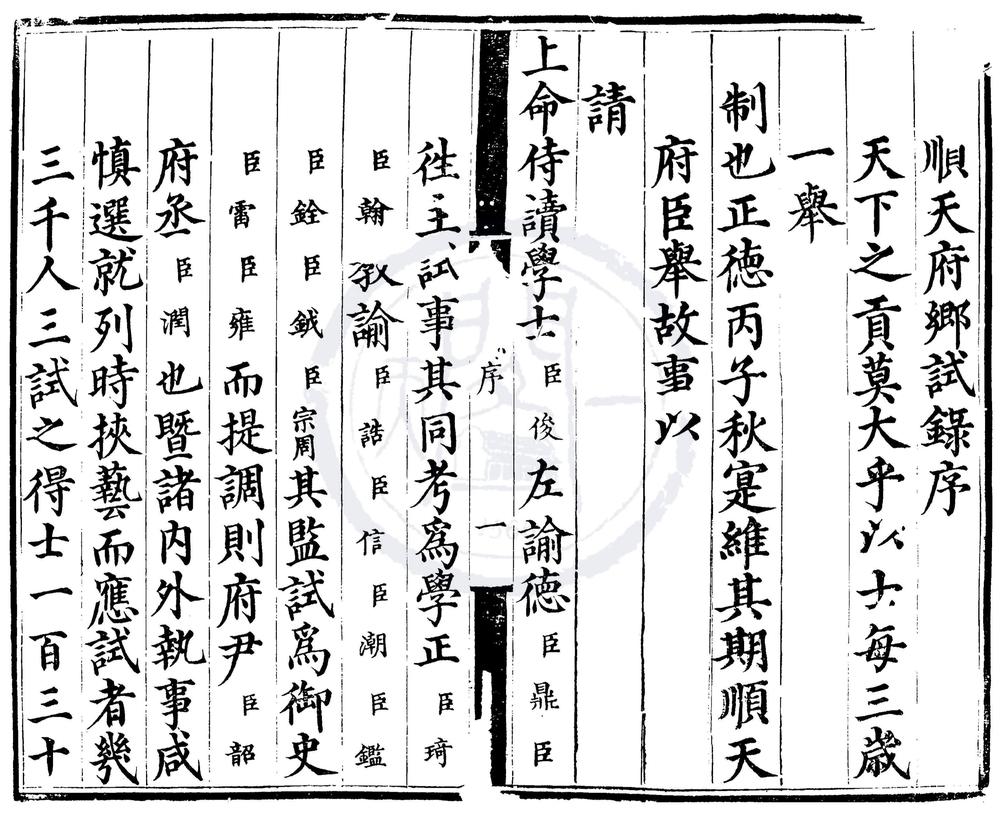 順天府鄉試錄序
天下之貢莫大乎以士每三歲
一舉
制也正德丙子秋寔維其期順天
府臣舉故事以
請
上命侍讀學士臣俊左諭德臣鼎臣
序
一
徃主試事其同考爲學正臣琦
臣翰敎諭臣誥臣信臣潮臣鑑
臣銓臣鉞臣宗周其監試爲御史
臣雷臣雍而提調則府尹臣韶
府丞臣潤也暨諸內外執事咸
慎選就列時挾藝而應試者幾
三千人三試之得士一百三十